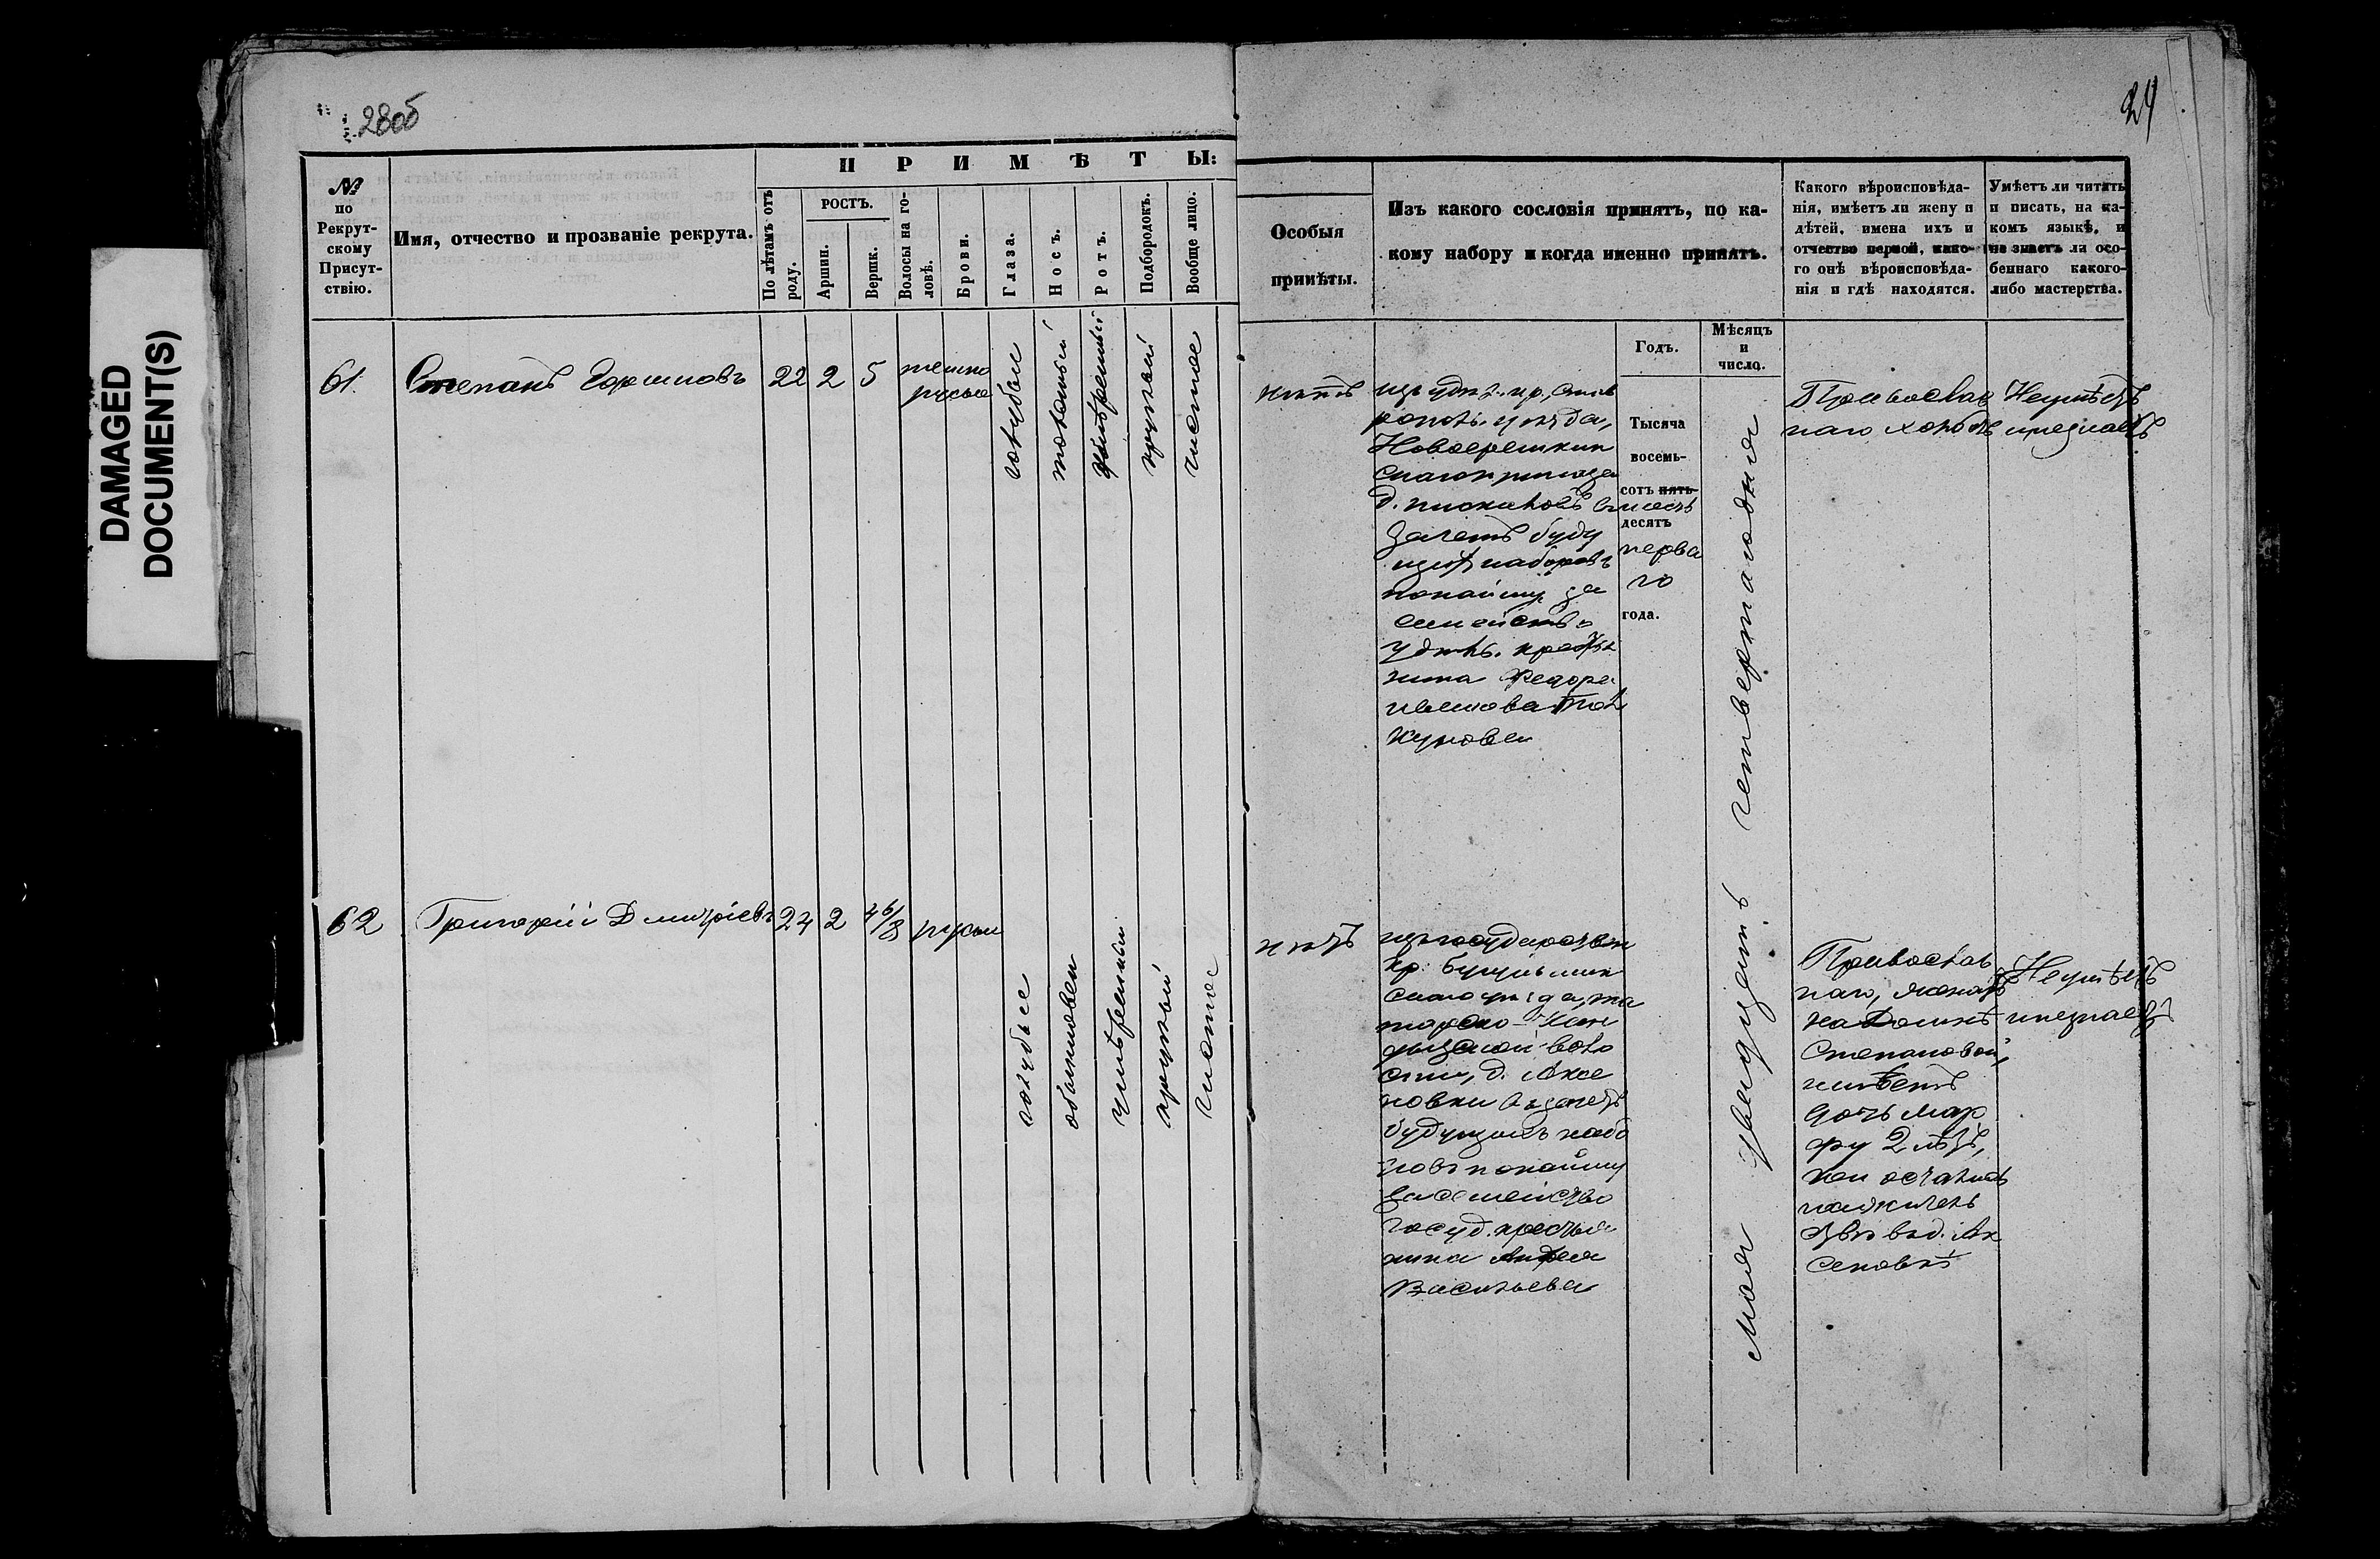 DAMAGED
DOCUMENT(S)
28об
29
ПРИМѢТЫ:
№
по
Рекрут-
скому
Присут-
ствію.
Имя, отчество и прозваніе рекрута.
По лѣтамъ отъ
роду.
РОСТЪ.
Аршин.
Вершк.
Волосы на го-
ловѣ.
Брови.
Глаза.
Носъ.
Ротъ.
Подбородокъ.
Вообще лицо.
Особыя
примѣты.
Изъ какого сословія принятъ, по ка-
кому набору и когда именно принятъ.
Какого вѣроисповѣда-
нія, имѣетъ ли жену и
дѣтей, имена ихъ и
отчество первой, како-
го онѣ вѣроисповѣда-
нія и гдѣ находятся.
Умѣетъ ли читать
и писать, на ка-
комъ языкѣ, и
не знаетъ ли осо-
беннаго какого-
либо мастерства.
Годъ.
Мѣсяцъ
и
число.
61.
Степанъ
22
2
5
темно
русые
голубыя
умѣренный
круглый
чистое
нѣтъ
изъ удѣл. кр. Став
ропол. уѣзда,
д.
зачетъ буду
щихъ наборовъ
по найму за
семейство
удѣль. крестья
нина Федора
Тысяча
восемь-
сотъ пять
шесть
десятъ
перва
го
года.
Мая двадцать четвертаго дня
Православ
наго холостъ
Неумѣетъ
и незнаетъ
62
Григорій Дмитріевъ
24
2
4 6/8
русые
голубые
обыкновен
умѣренный
круглый
чистое
нѣтъ
изъ государствен
кр. Бугульмин
скаго уѣзда,
воло
сти, д. Аксе
новки въ зачетъ
будущихъ набо
ровъ по найму
за семейство
госуд. крестья
нина Андрея
Васильева
Православ
наго, женатъ
на Домнѣ
Степановой,
имѣетъ
дочь Мар
фу 2 лѣтъ,
кои остались
на житель
ствѣ въ д. Ак
сеновкѣ
Неумѣетъ
и незнаетъ